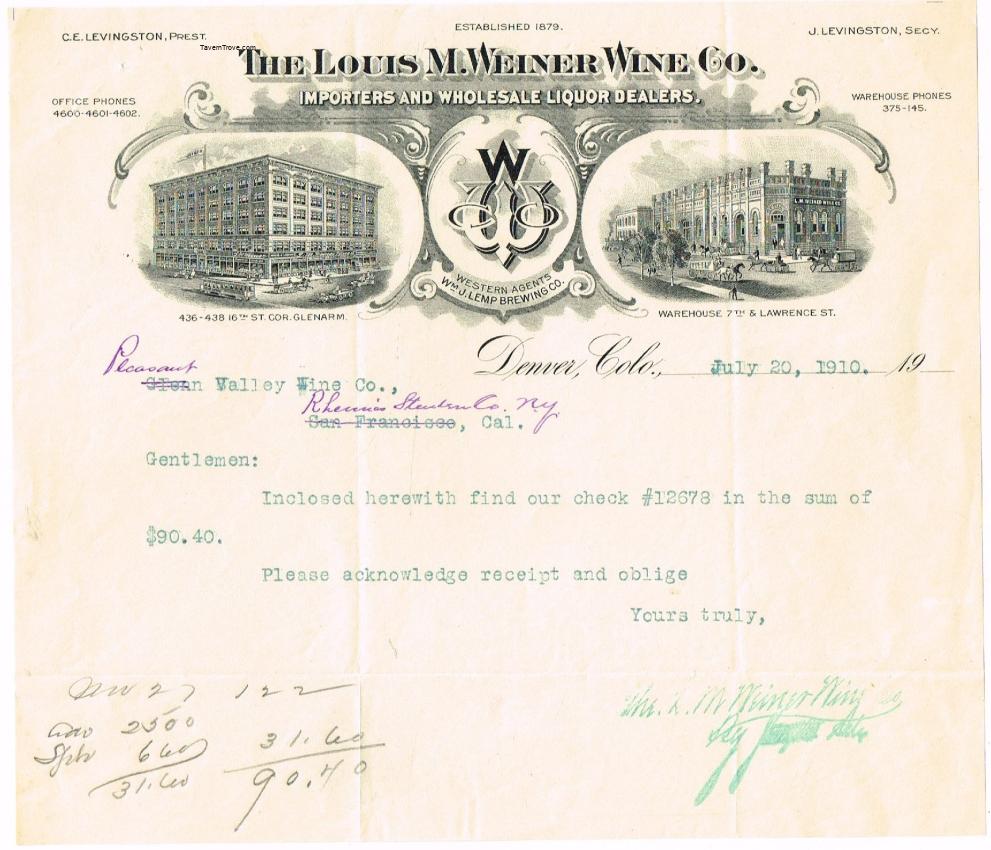 ESTABLISHED 1879.
C.E. LEVINGSTON, PREST.
J. LEVINGSTON, SECY.
TavernTrove.com
THE LOUIS M. WEINER WINE CO.
IMPORTERS AND WHOLESALE LIQUOR DEALERS.
OFFICE PHONES
4600-4601-4602.
WAREHOUSE PHONES
375-145.
W
CO
L.M. WEINER WINE CO.
WESTERN AGENTS
WM. J. LEMP BREWING CO.
436-438 16TH ST. COR. GLENARM.
WAREHOUSE 7TH & LAWRENCE ST.
Denver, Colo., July 20, 1910. 19
Pleasant
Glenn Valley Wine Co.,
Rheims Steuben Co. N.Y.
San Francisco, Cal.
Gentlemen:
Inclosed herewith find our check #12678 in the sum of
$90.40.
Please acknowledge receipt and oblige
Yours truly,
The L. M. Weiner Wine Co
27 122
2500
660 31.60
31.60 90.40